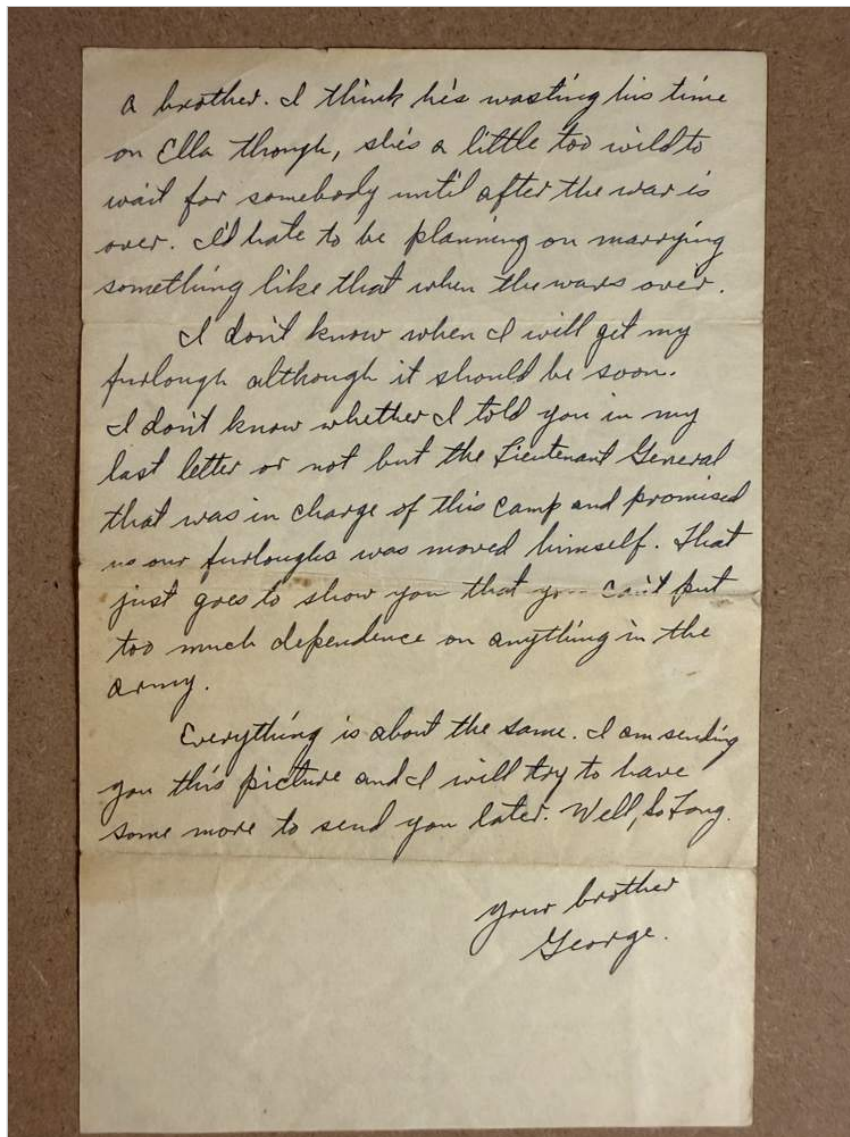 a brother. I think he's wasting his time
on Ella though, she's a little too wild to
wait for somebody until after the war is
over. I'd hate to be planning on marrying
something like that when the wars over.
I don't know when I will get my
furlough although it should be soon.
I don't know whether I told you in my
last letter or not but the Lieutenant General
that was in charge of this camp and promised
us our furloughs was moved himself. That
just goes to show you that can't put
too much dependence on anything in the
army.
Everything is about the same. I am sending
you this picture and I will try to have
some more to send you later. Well, So Long.
your brother
George.